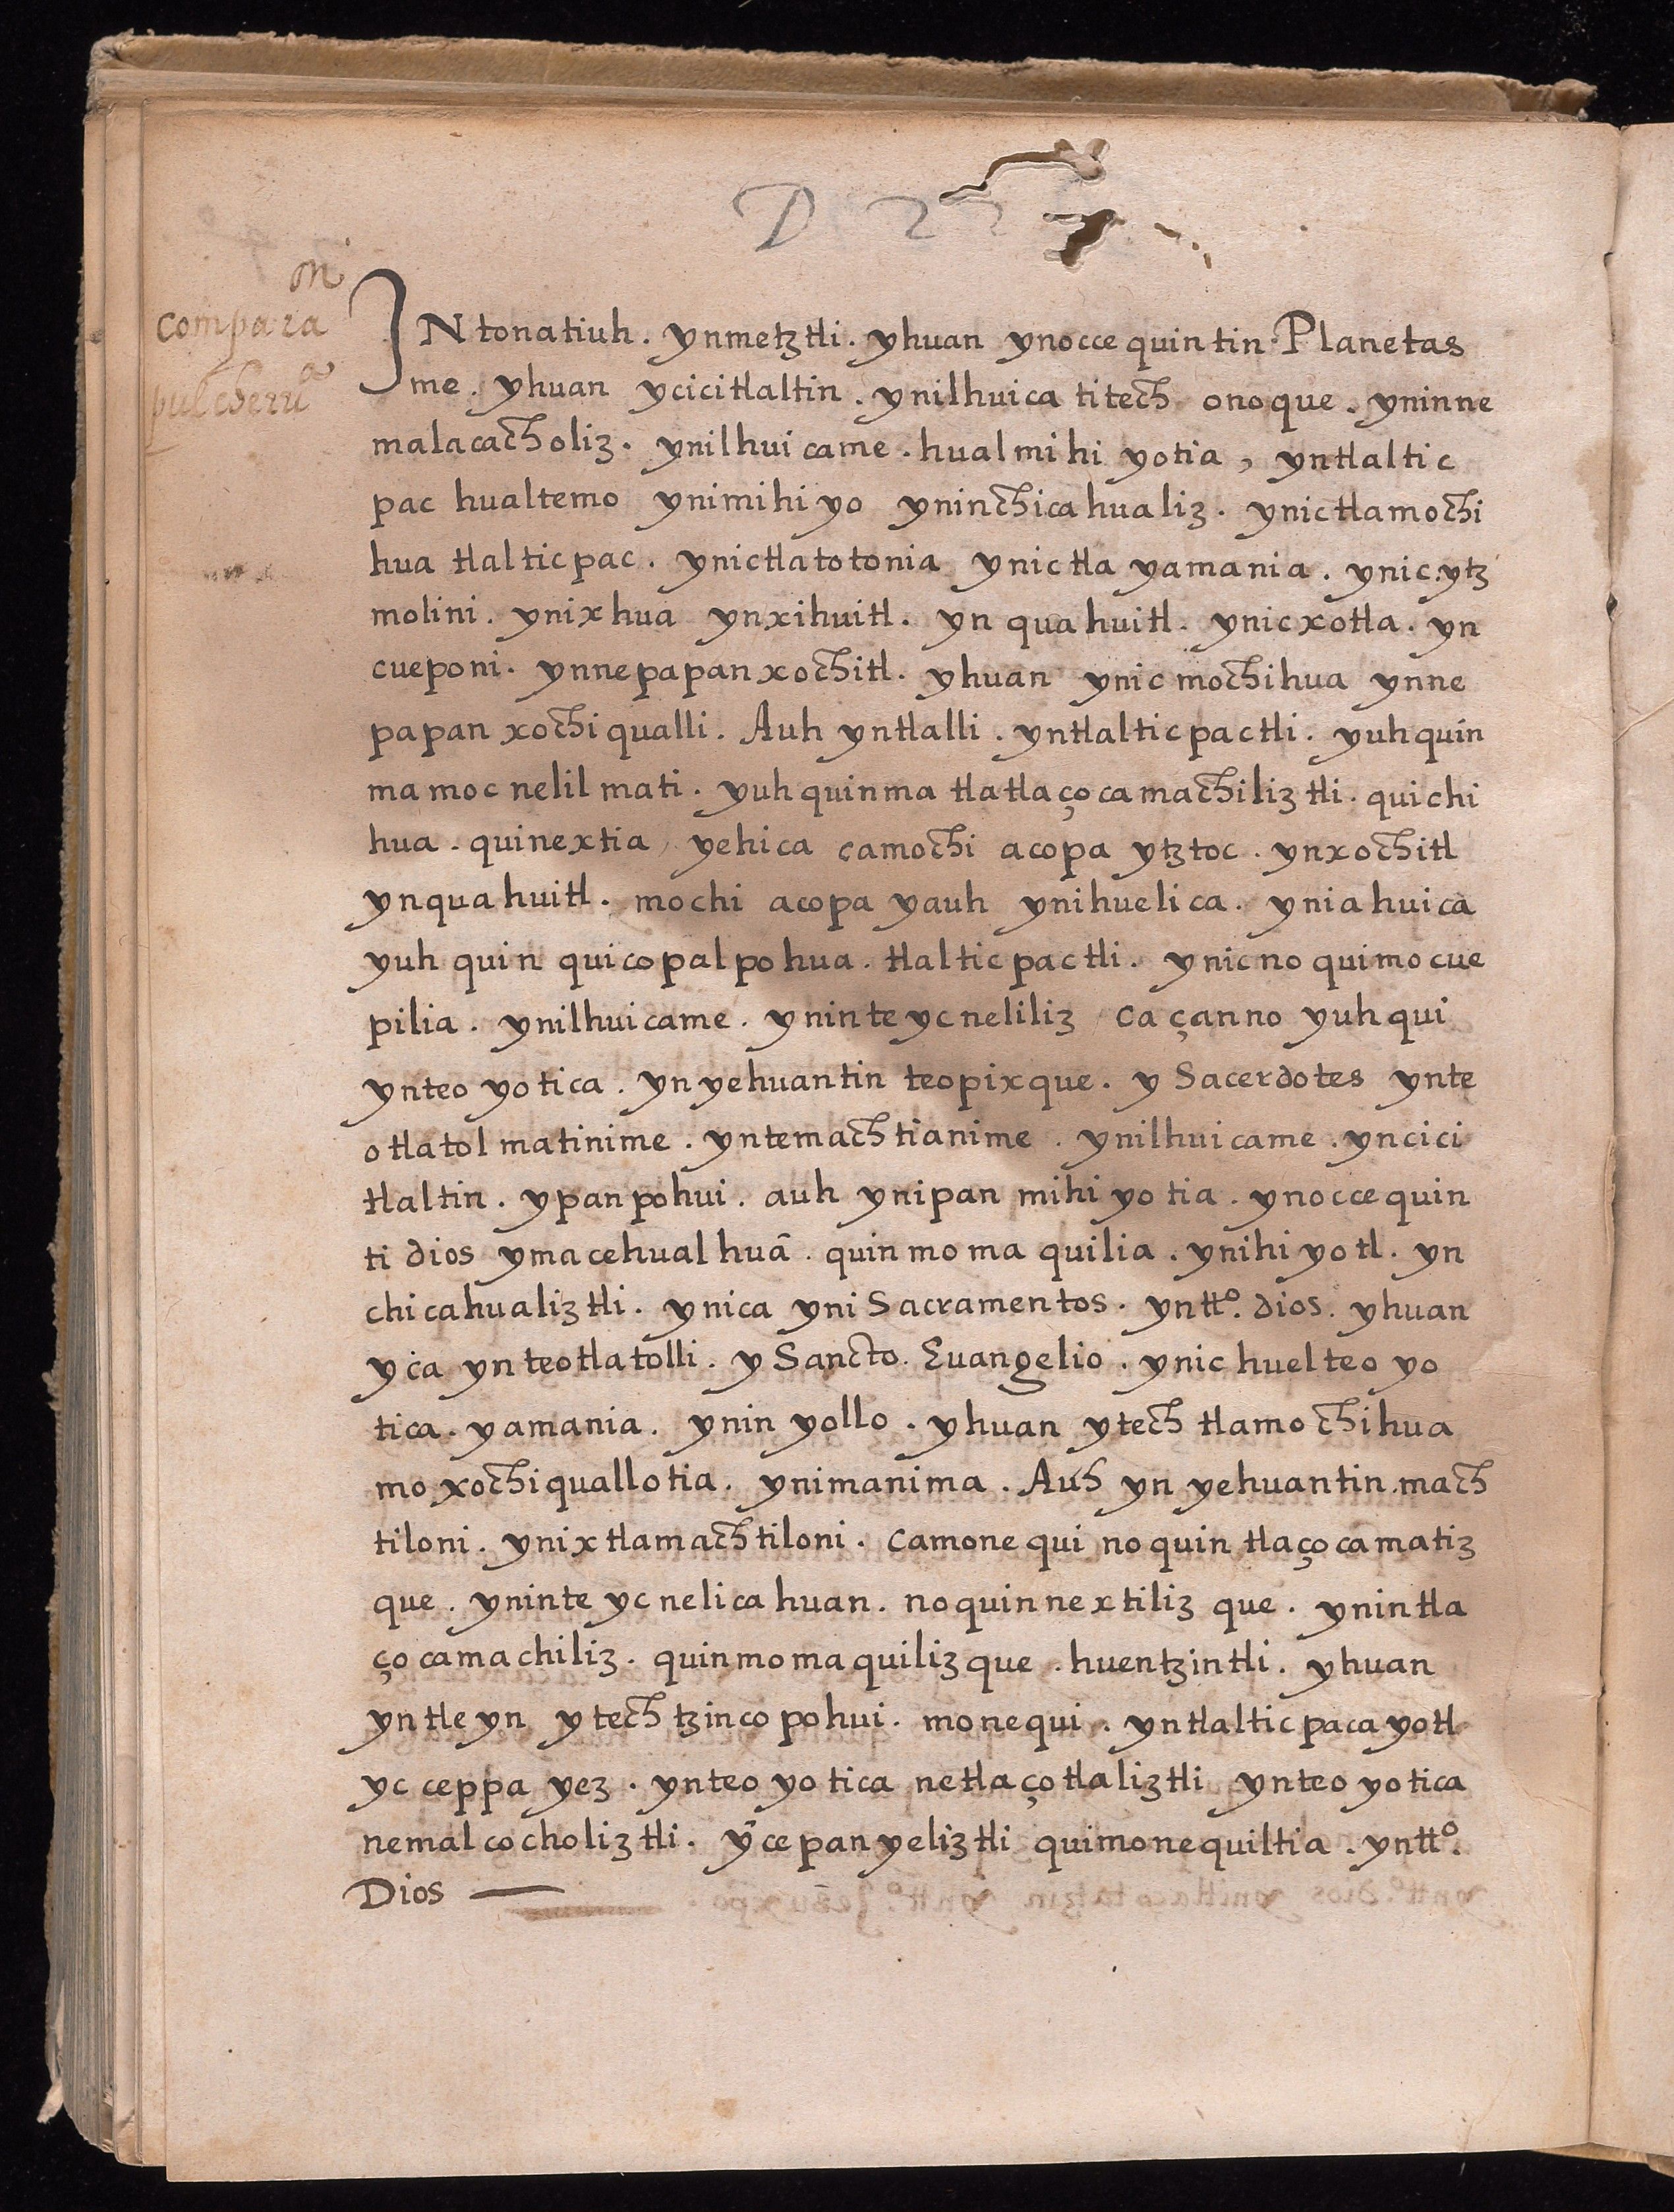 D 22
on
compara
a
pulcherr
IN tonatiuh. ynmetztli. yhuan ynocce quintin Planetas
me. yhuan ycicitlaltin. ynilhuica titech onoque. yninne
malacacholiz. ynilhuicame. hualmihiyotia, yntlaltic
pac hualtemo ynimihiyo yninchicahualiz. ynictlamochi
hua tlalticpac. ynictlatotonia ynictla yamania. ynic.ytz
molini. ynixhua ynxihuitl. yn quahuitl. ynicxotla. yn
cueponi. ynnepapanxochitl. yhuan ynic mochihua ynne
papan xochiqualli. Auh yntlalli. yntlalticpactli. yuhquin
ma mocnelilmati. yuhquinma tlatlaçocamachiliztli. quichi
hua. quinextia, yehica camochi acopa ytztoc. ynxochitl
ynquahuitl. mochi acopa yauh ynihuelica. yniahuica
yuh quin quicopalpohua. tlalticpactli. ynicno quimocue
pilia. ynilhuicame. yninteycneliliz ca çanno yuhqui
ynteoyotica. yn yehuantin teopixque. y Sacerdotes ynte
otlatolmatinime. yntemachtianime. ynilhuicame. yncici
tlaltin. ypanpohui. auh ynipan mihiyotia. ynoccequin
ti dios ymacehualhuā. quinmomaquilia. ynihiyotl. yn
chicahualiztli. ynica yni Sacramentos. yntto. dios. yhuan
yca ynteotlatolli. y Sancto. Euangelio. ynic huelteoyo
tica. yamania. ynin yollo. yhuan ytech tlamochihua
moxochiquallotia. ynimanima. Auh yn yehuantin.mach
tiloni. ynixtlamachtiloni. camonequi noquin tlaçocamatiz
que. yninteycnelicahuan. noquinnextilizque. ynintla
çocamachiliz. quinmomaquilizque. huentzintli. yhuan
yntleyn ytechtzincopohui. monequi. yntlalticpacayotl
yc ceppa yez. ynteoyotica netlaçotlaliztli ynteoyotica
nemalcocholiztli. ȳcepanyeliztli quimonequiltia. yntto.
Dios —